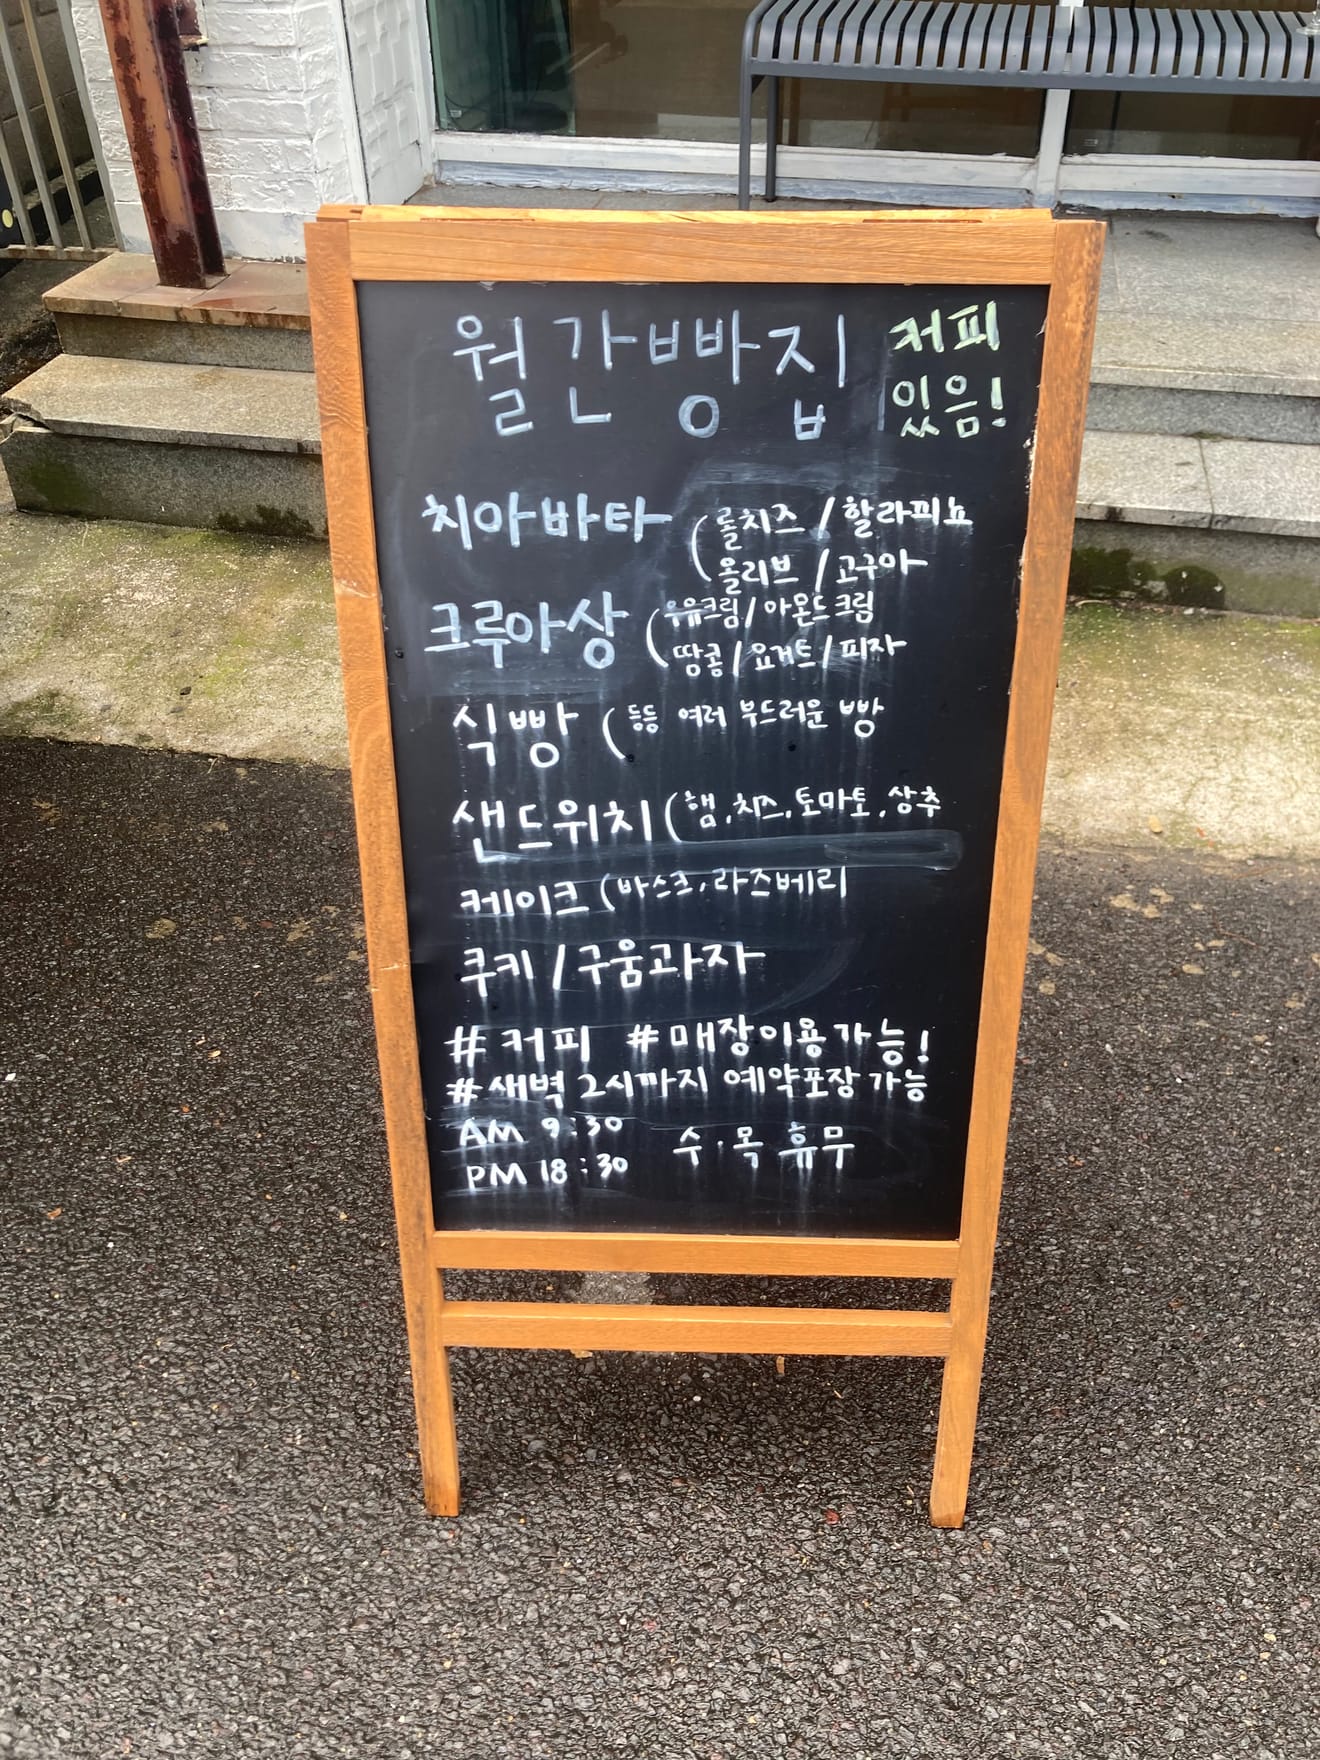 월간빵집 커피 있음!
치아바타 (롤치즈 / 할라피뇨
올리브 / 고구마
크루아상 (우유크림 / 아몬드크림
땅콩 / 요거트 / 피자
식빵 (등등 여러 부드러운 빵
샌드위치 (햄, 치즈, 토마토, 상추
케이크 (바스크, 라즈베리
쿠키 / 구움과자
# 커피 # 매장이용가능!
# 새벽 2시까지 예약포장가능
AM 9:30 수·목 휴무
PM 18:30